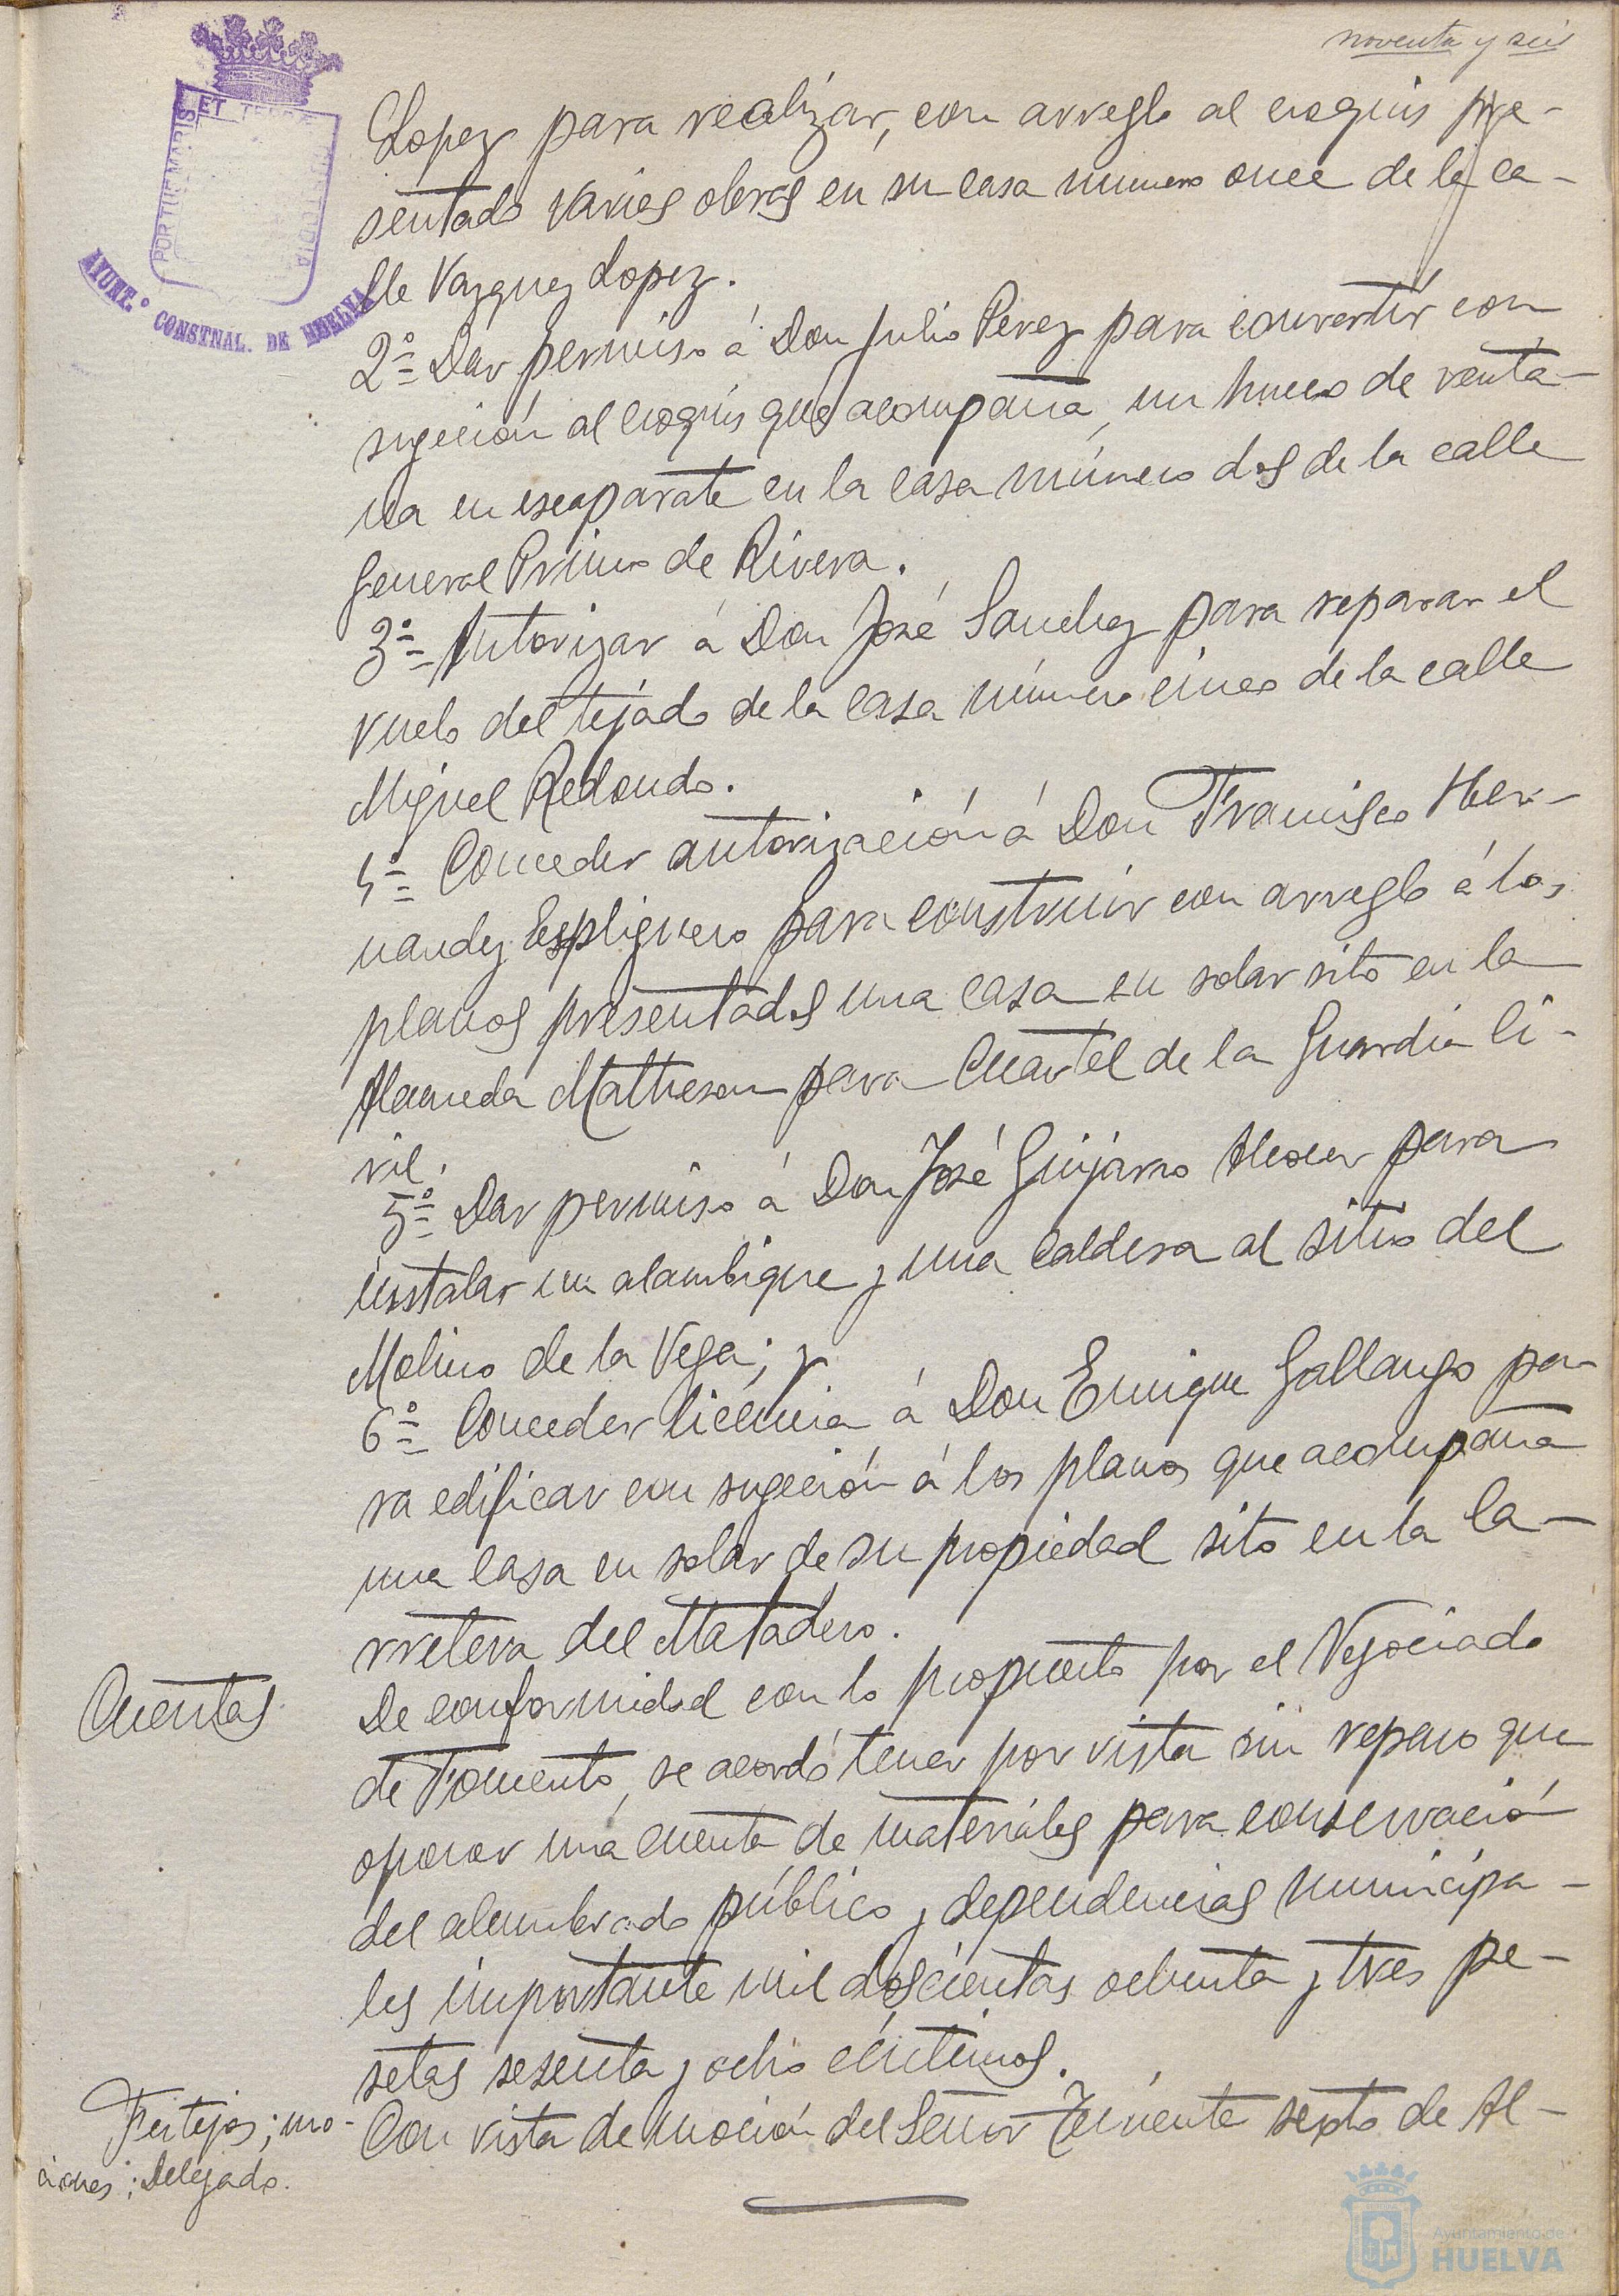 noventa y seis
PORTUS MARIS ET TERRE CUSTODIA
AYUNT.º CONSTNAL. DE HUELVA
Lopez para realizar, con arreglo al croquis pre-
sentado varias obras en su casa número once de la ca-
lle Vazquez Lopez.
2º = Dar permiso á Don Julio Perez para convertir con
sugeción al croquis que acompaña, un hueco de venta-
na en escaparate en la casa número dos de la calle
General Primo de Rivera.
3º = Autorizar á Don José Sanchez para reparar el
vuelo del tejado de la casa número cinco de la calle
Miguel Redondo.
4º = Conceder autorización á Don Francisco Her-
nandez Espliguero para construir con arreglo á los
planos presentados una casa en solar sito en la
Alameda Matheson para Cuartel de la Guardia Ci-
vil.
5º = Dar permiso á Don José Guijarro Alcocer para
instalar un alambique y una caldera al sitio del
Molino de la Vega; y
6º = Conceder licencia á Don Enrique Gallango pa-
ra edificar con sugeción á los planos que acompaña
una casa en solar de su propiedad sito en la Ca-
rretera del Matadero.
Cuentas
De conformidad con lo propuesto por el Negociado
de Fomento, se acordó tener por vista sin reparo que
oponer una cuenta de materiales para conservación
del alumbrado público y dependencias municipa-
les importante mil doscientas ochenta y tres pe-
setas sesenta y ocho céntimos.
Festejos; mo-
ciones; Delegado.
Con vista de moción del Señor Teniente sexto de Al-
Ayuntamiento de
HUELVA